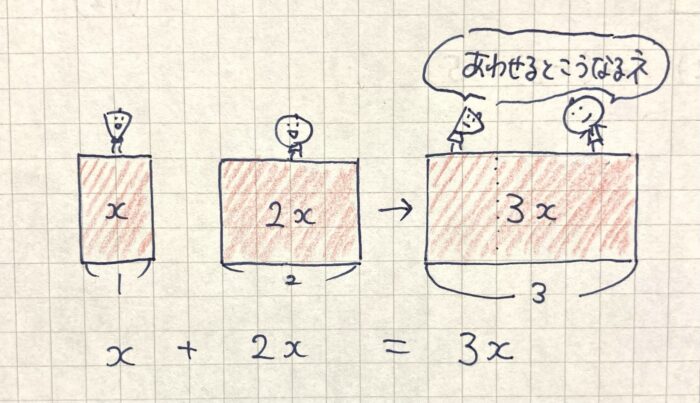 あわせるとこうなるネ
x
2x
→
3x
1
2
3
x + 2x = 3x